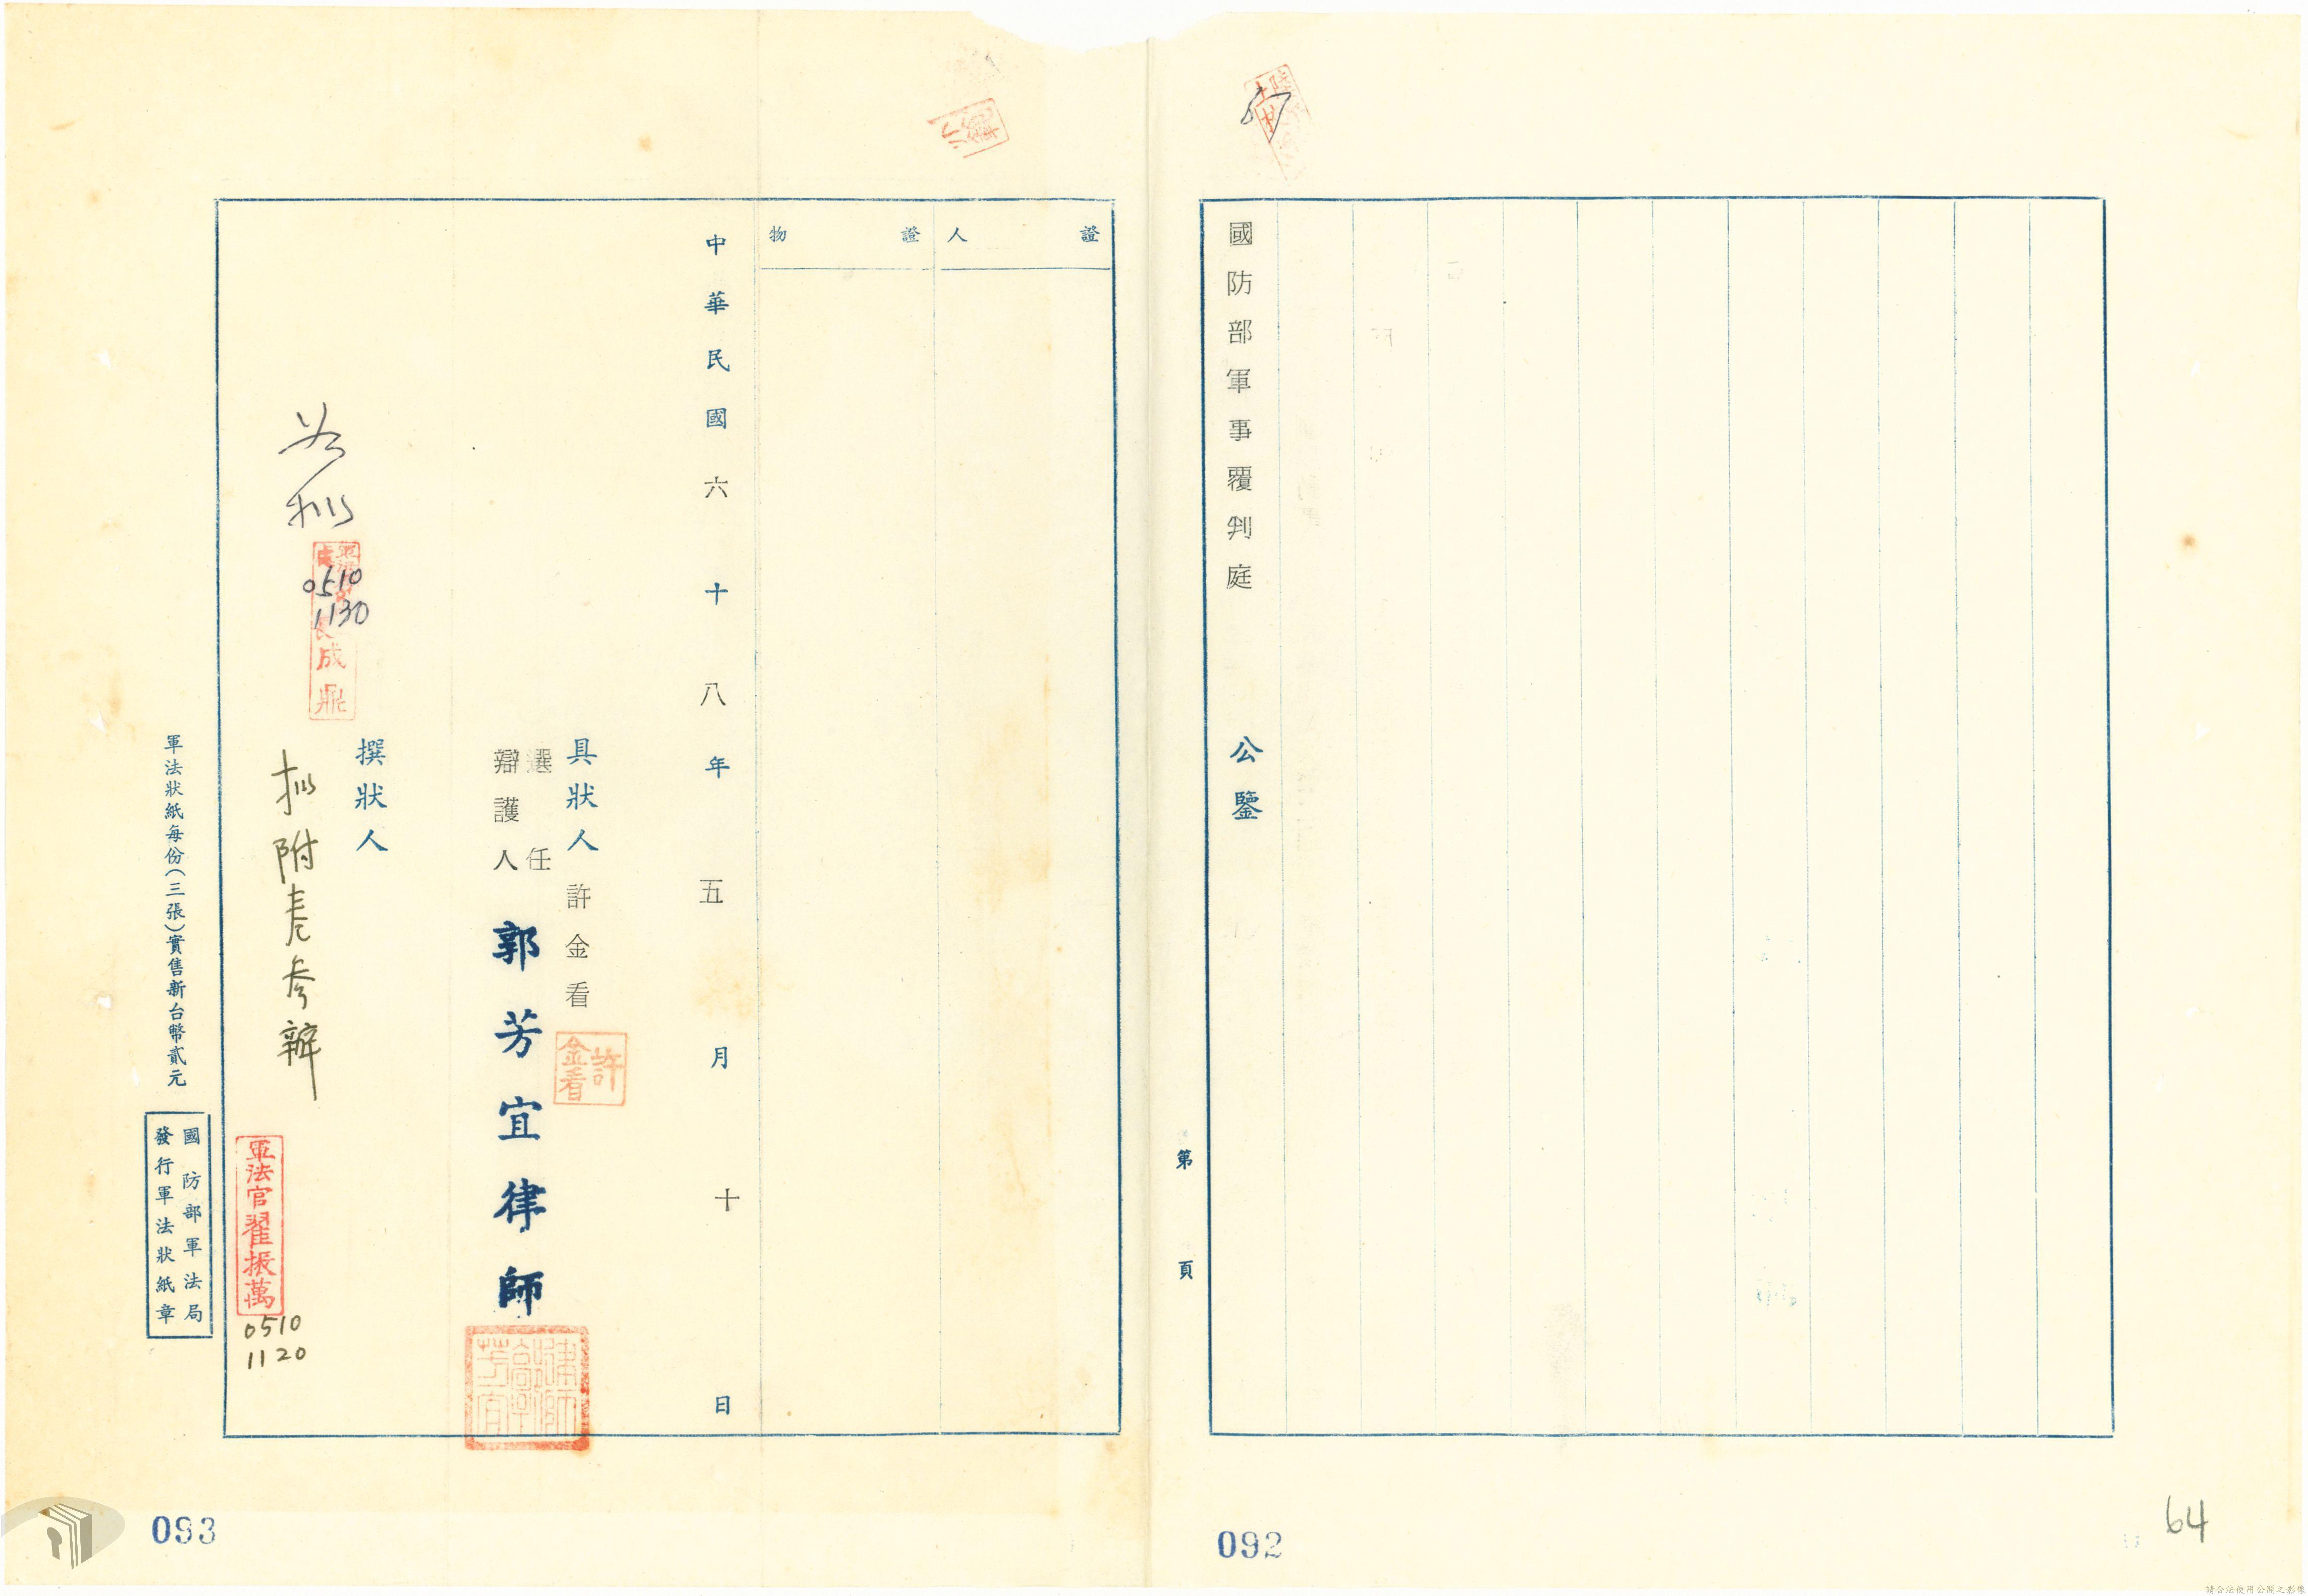 國防部軍事覆判庭 公鑒
第 頁
證人
證物
中華民國六十八年五月十日
具狀人 許金看
許金看
選任
辯護人 郭芳宜律師
撰狀人
擬附卷參辦
成鼎
0510
1130
軍法官翟振萬
0510
1120
軍法狀紙每份(三張)實售新台幣貳元
國防部軍法局
發行軍法狀紙章
093
092
64
請合法使用公開之影像